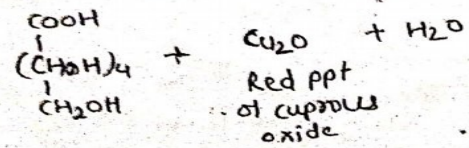 COOH
(CHOH)4 + Cu2O + H2O
CH2OH Red ppt
of cuprous
oxide